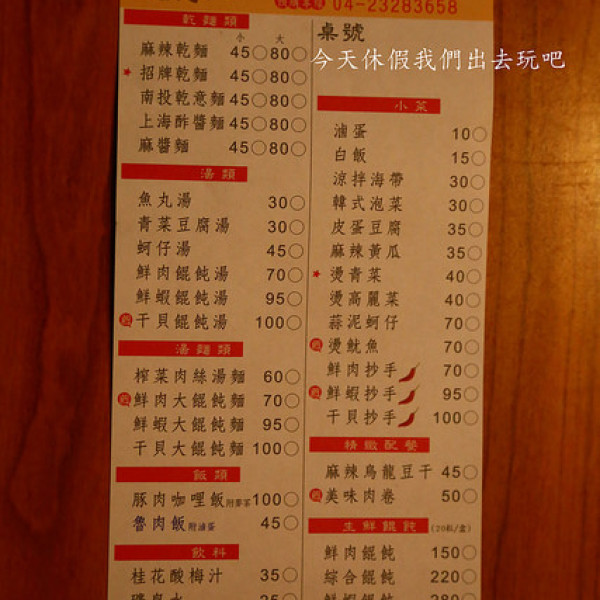 04-23283658
乾麵類
小 大
麻辣乾麵 45○80○
招牌乾麵 45○80○
南投乾意麵 45○80○
上海酢醬麵 45○80○
麻醬麵 45○80○
湯類
魚丸湯 30○
青菜豆腐湯 30○
蚵仔湯 45○
鮮肉餛飩湯 70○
鮮蝦餛飩湯 95○
干貝餛飩湯 100○
湯麵類
榨菜肉絲湯麵 60○
鮮肉大餛飩麵 70○
鮮蝦大餛飩麵 95○
干貝大餛飩麵 100○
飯類
豚肉咖哩飯附麥茶100○
魯肉飯附滷蛋 45○
飲料
桂花酸梅汁 35○
桌號
今天休假我們出去玩吧
小菜
滷蛋 10○
白飯 15○
涼拌海帶 30○
韓式泡菜 30○
皮蛋豆腐 35○
麻辣黃瓜 35○
燙青菜 40○
燙高麗菜 40○
蒜泥蚵仔 70○
燙魷魚 70○
鮮肉抄手 70○
鮮蝦抄手 95○
干貝抄手 100○
精緻配餐
麻辣烏龍豆干 45○
美味肉卷 50○
生鮮餛飩 (20粒/盒)
鮮肉餛飩 150○
綜合餛飩 220○
鮮蝦餛飩 280○